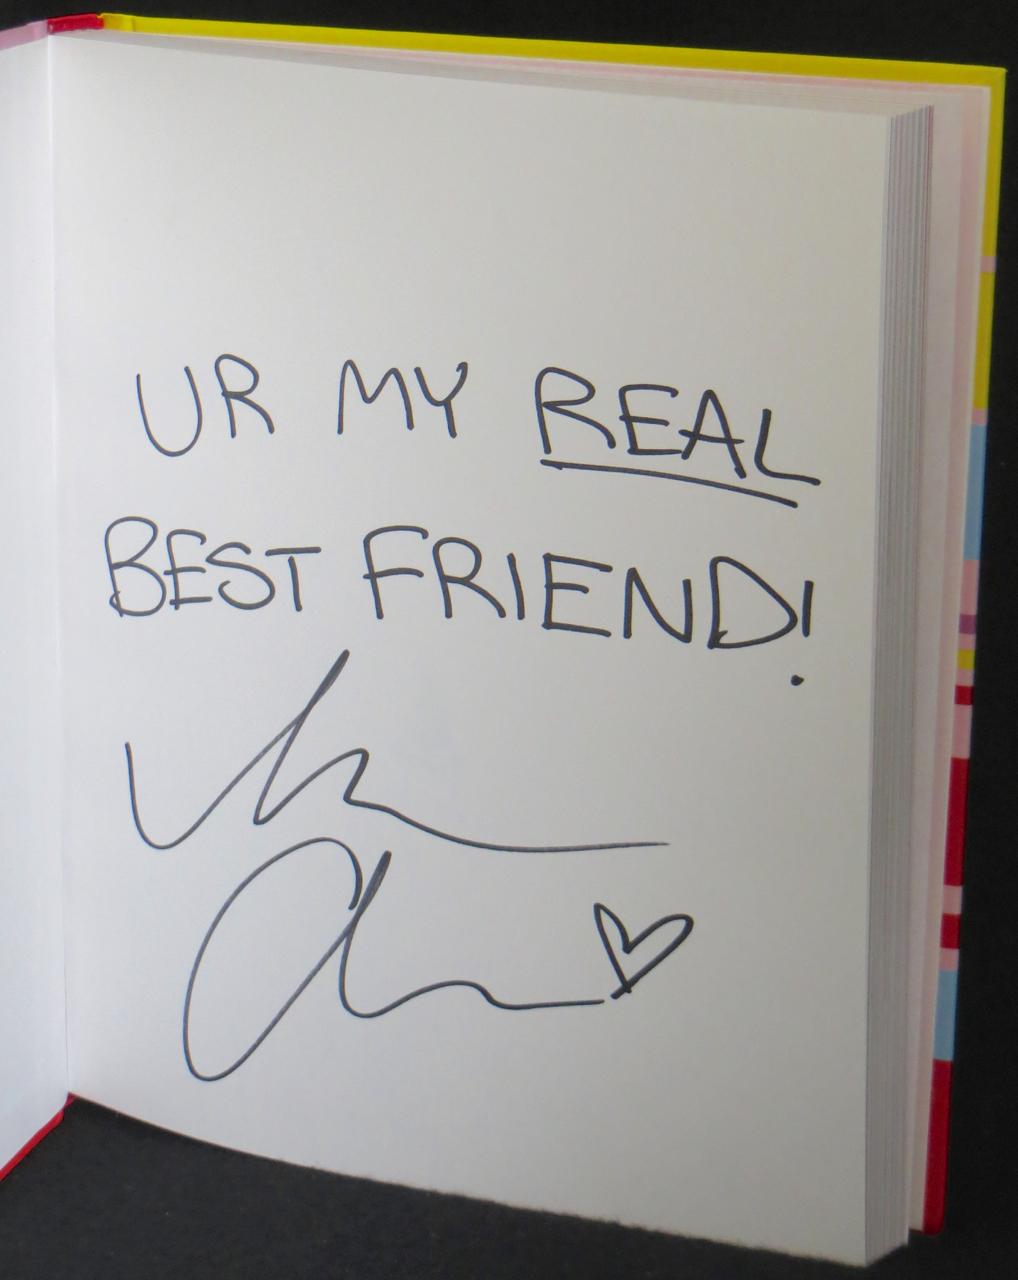 UR MY REAL
BEST FRIEND!